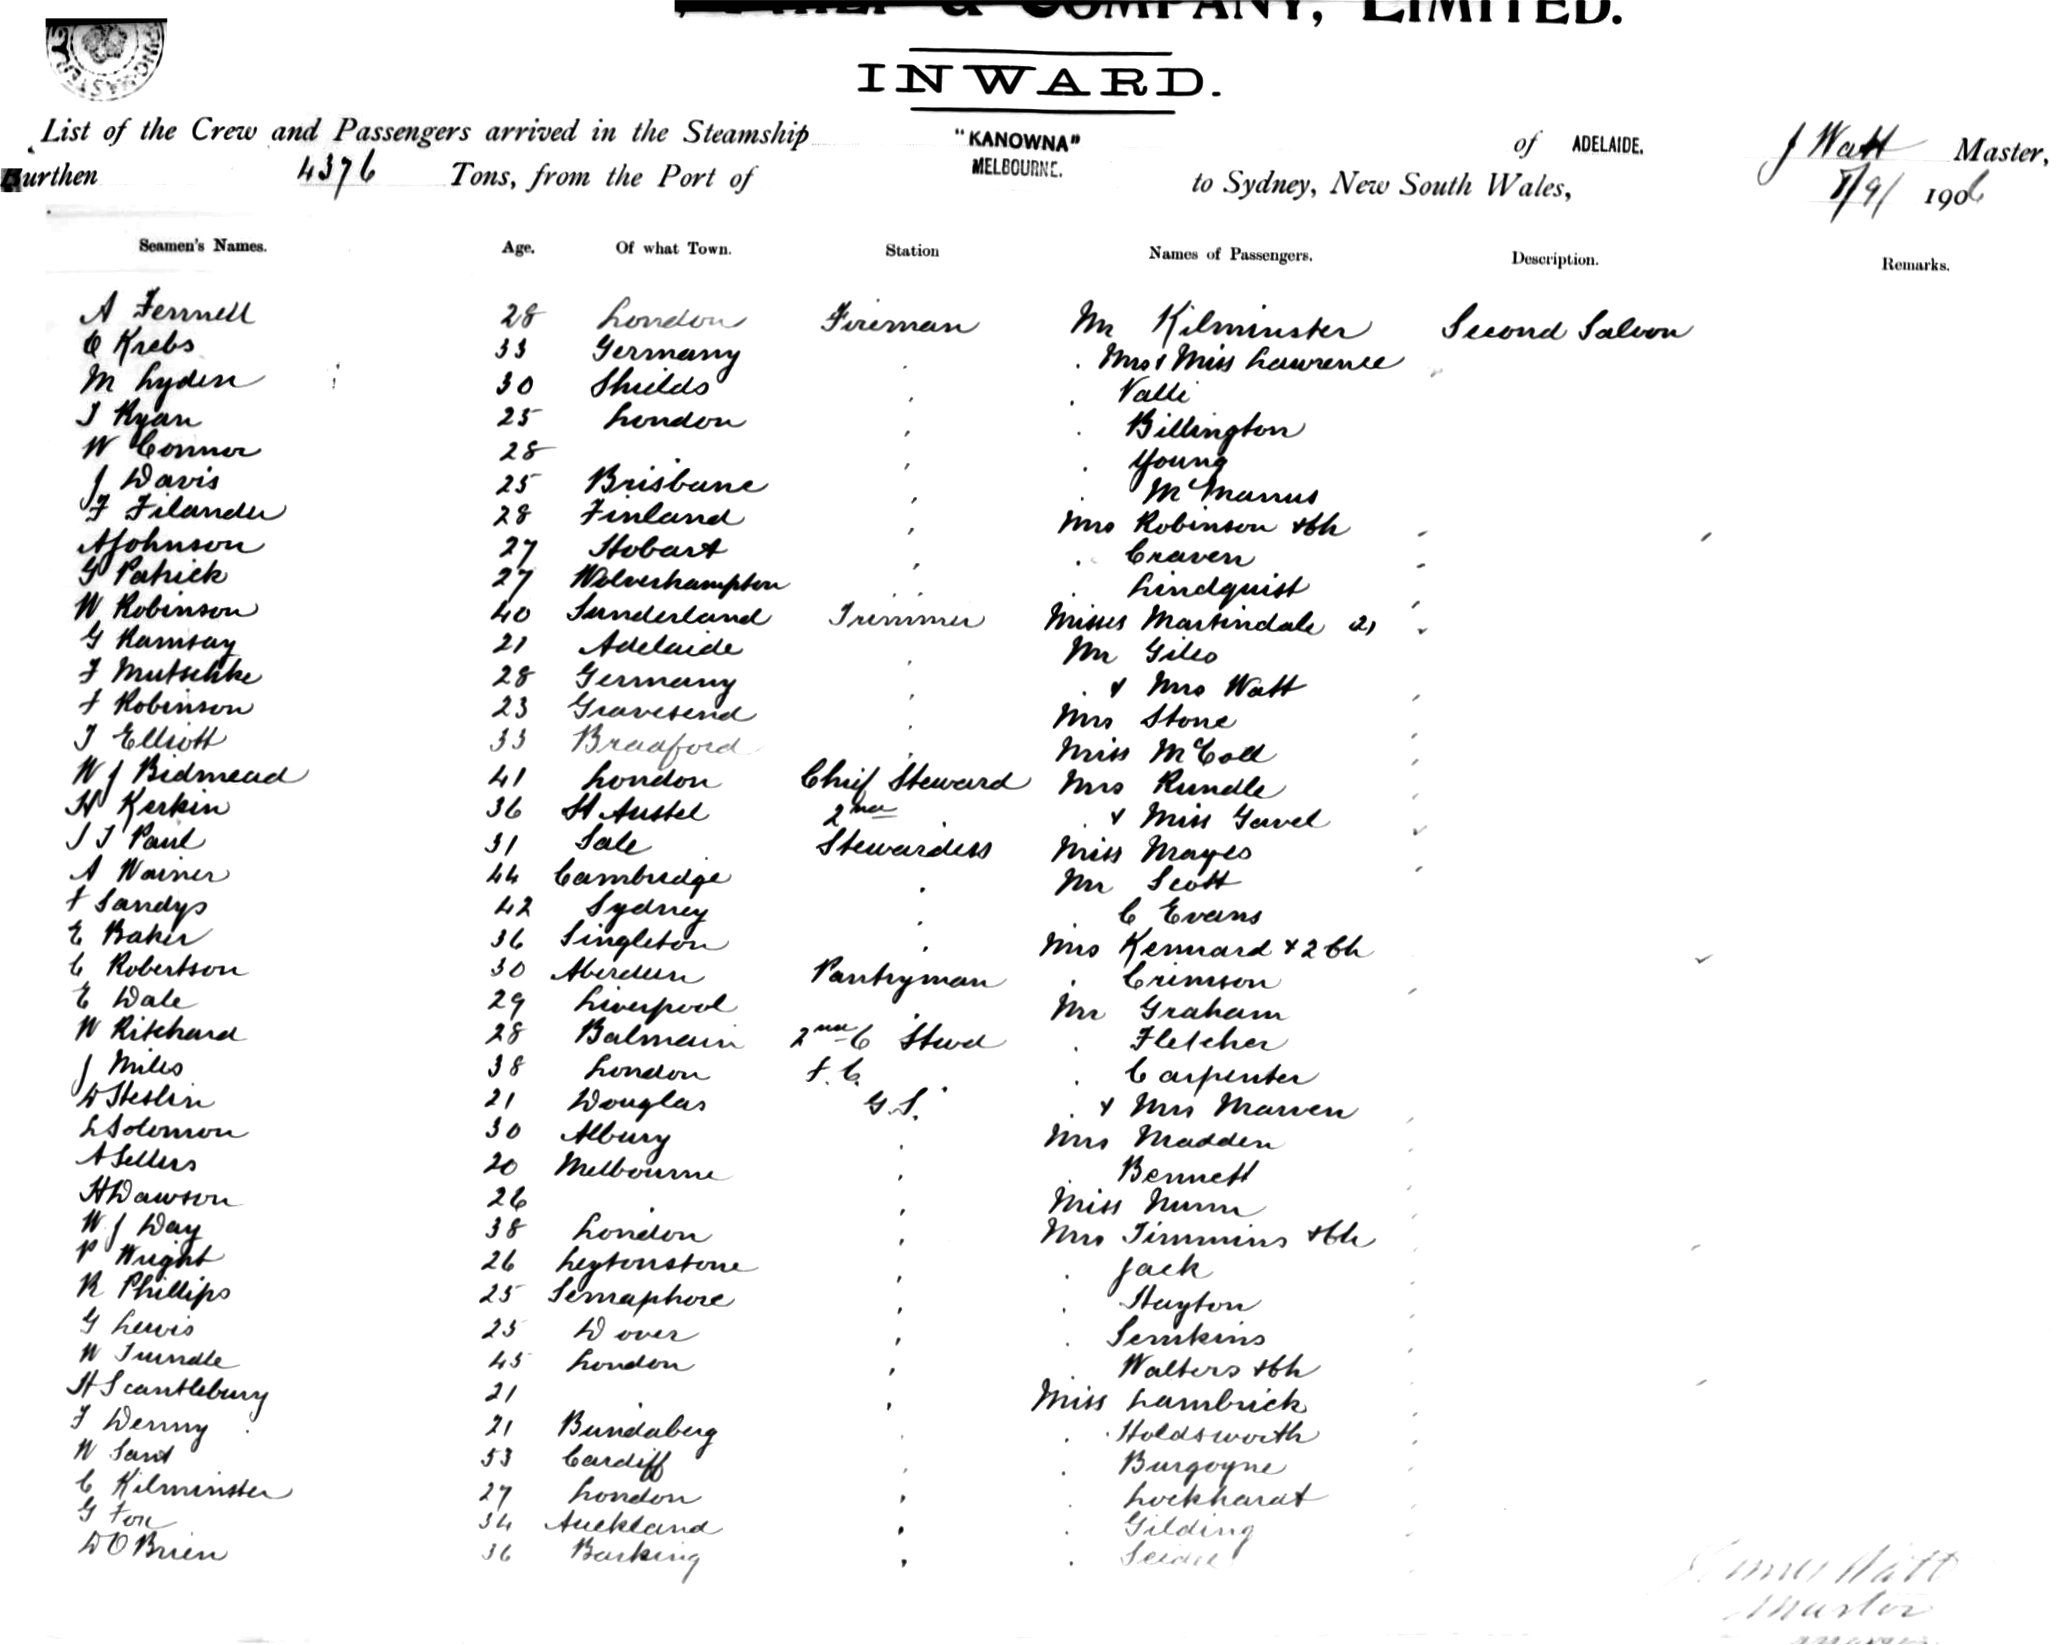 & COMPANY, LIMITED.
INWARD.
List of the Crew and Passengers arrived in the Steamship "KANOWNA" of ADELAIDE. J Watt Master,
Burthen 4376 Tons, from the Port of MELBOURNE. to Sydney, New South Wales, 8/9/ 1906
Seamen's Names. Age. Of what Town. Station Names of Passengers. Description. Remarks.
A Fennell 28 London Fireman Mr Kilminster Second Saloon
C Krebs 33 Germany . . Mrs & Miss Lawrence
M Lyden 30 Shields . . Valli
T Ryan 25 London . . Billington
W Connor 28 . . Young
J Davis 25 Brisbane . . McManus
F Filander 28 Finland . Mrs Robinson & Ch
A Johnson 27 Hobart . . Craven
G Patrick 27 Wolverhampton . . Lindquist
W Robinson 40 Sunderland Trimmer Misses Martindale (2)
G Ramsay 21 Adelaide . Mr Giles
F Mutschke 28 Germany . . & Mrs Watt
F Robinson 23 Gravesend . Mrs Stone
T Elliott 33 Bradford . Miss McColl
W J Bidmead 41 London Chief Steward Mrs Rundle
H Kerkin 36 St Austel 2nd . & Miss Gavel
J T Paul 31 Sale Stewardess Miss Mayes
A Warner 44 Cambridge . Mr Scott
F Sandys 42 Sydney . . C Evans
E Baker 36 Singleton . Mrs Kennard & 2 Ch
C Robertson 30 Aberdeen Pantryman . Crimson
E Dale 29 Liverpool . Mr Graham
W Ritchard 28 Balmain 2nd C Stwd . Fletcher
J Miles 38 London F.C. . Carpenter
D Heslin 21 Douglas G.S. . & Mrs Marven
L Solomon 30 Albury . Mrs Madden
A Sellers 20 Melbourne . . Bennett
H Dawson 26 . . Miss Nunn
W J Day 38 London . Mrs Timmins & Ch
P Wright 26 Leytonstone . . Jack
R Phillips 25 Semaphore . . Hayton
G Lewis 25 Dover . . Semkins
W Trundle 45 London . . Walters & Ch
H Scantlebury 21 . . Miss Lambrick
F Denny 21 Bundaberg . . Holdsworth
W Sant 53 Cardiff . . Burgoyne
C Kilminster 27 London . . Lockhardt
G Fox 34 Auckland . . Gilding
D O'Brien 36 Barking . .
James Watt
Master